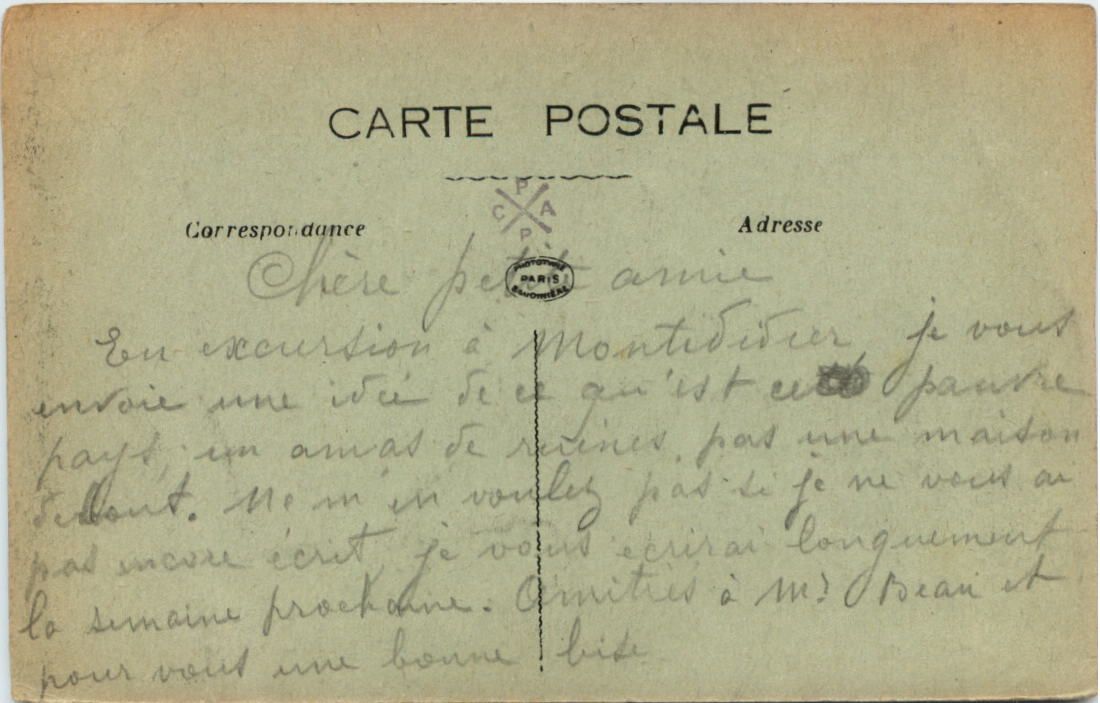 CARTE POSTALE
P
C A
P
Correspondance Adresse
Chère petite amie
PHOTOTYPIE
PARIS
BAUDINIÈRE
En excursion à Montdidier je vous
envoie une idée de ce qu'est ce pauvre
pays, un amas de ruines, pas une maison
debout. Ne m'en voulez pas si je ne vous ai
pas encore écrit, je vous ecrirai longuement
la semaine prochaine. Amitiés à Mr Beau et
pour vous une bonne bise